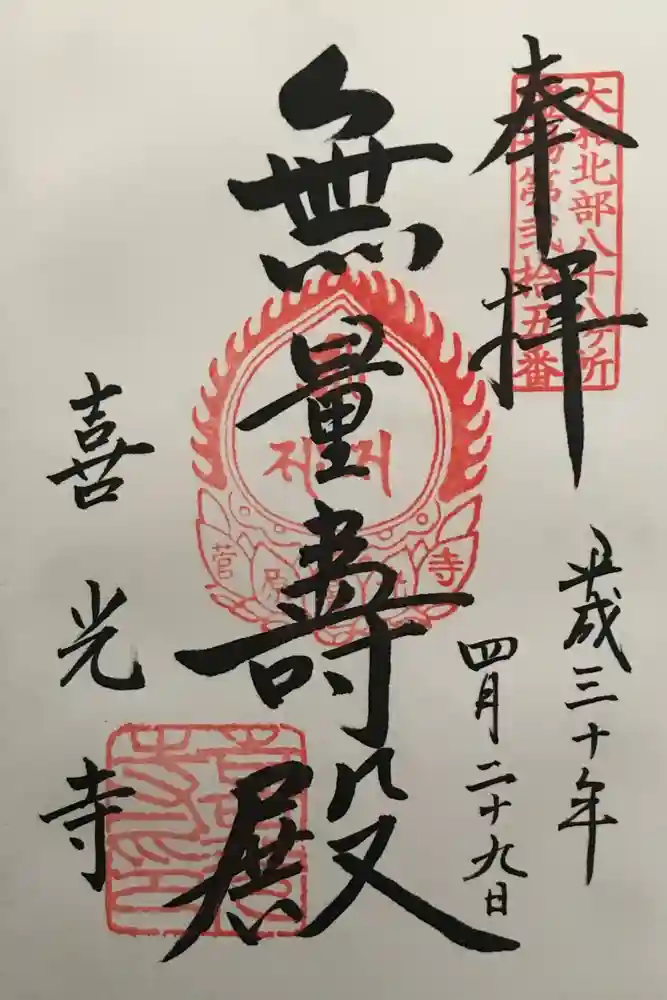 奉拝
大和北部八十八ヶ所
霊場第弐拾五番
平成三十年
四月二十九日
無量壽殿
菅原 寺
喜光寺